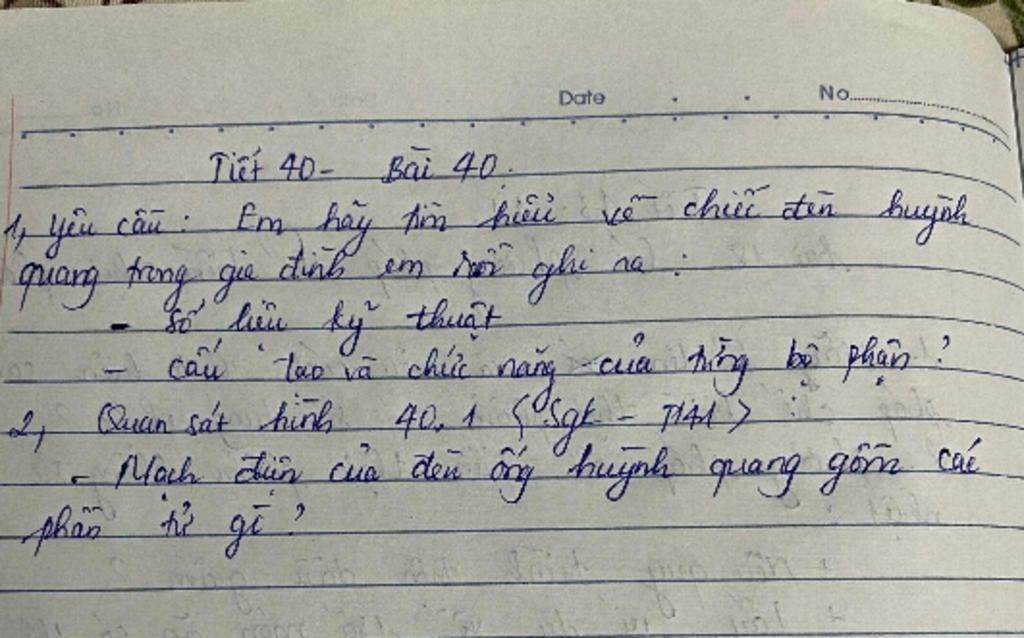 Date . . No.
Tiết 40 - Bài 40.
1, Yêu cầu : Em hãy tìm hiểu về chiếc đèn huỳnh
quang trong gia đình em rồi ghi ra :
- Số liệu kỹ thuật
- Cấu tạo và chức năng của từng bộ phận ?
2, Quan sát hình 40.1 < Sgk - T141 > :
- Mạch điện của đèn ống huỳnh quang gồm các
phần tử gì ?